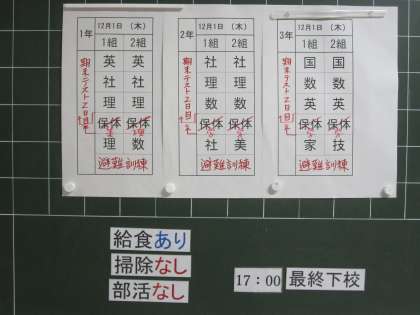 1年
12月1日 (木)
1組 2組
英 英
社 社
理 理
保体 保体
理 数
避難訓練
期末テスト2日目
2年
12月1日 (木)
1組 2組
社 社
理 理
数 数
保体 保体
社 美
避難訓練
期末テスト2日目
3年
12月1日 (木)
1組 2組
国 国
数 数
英 英
保体 保体
家 技
避難訓練
期末テスト2日目
給食あり
掃除なし
部活なし
17:00 最終下校